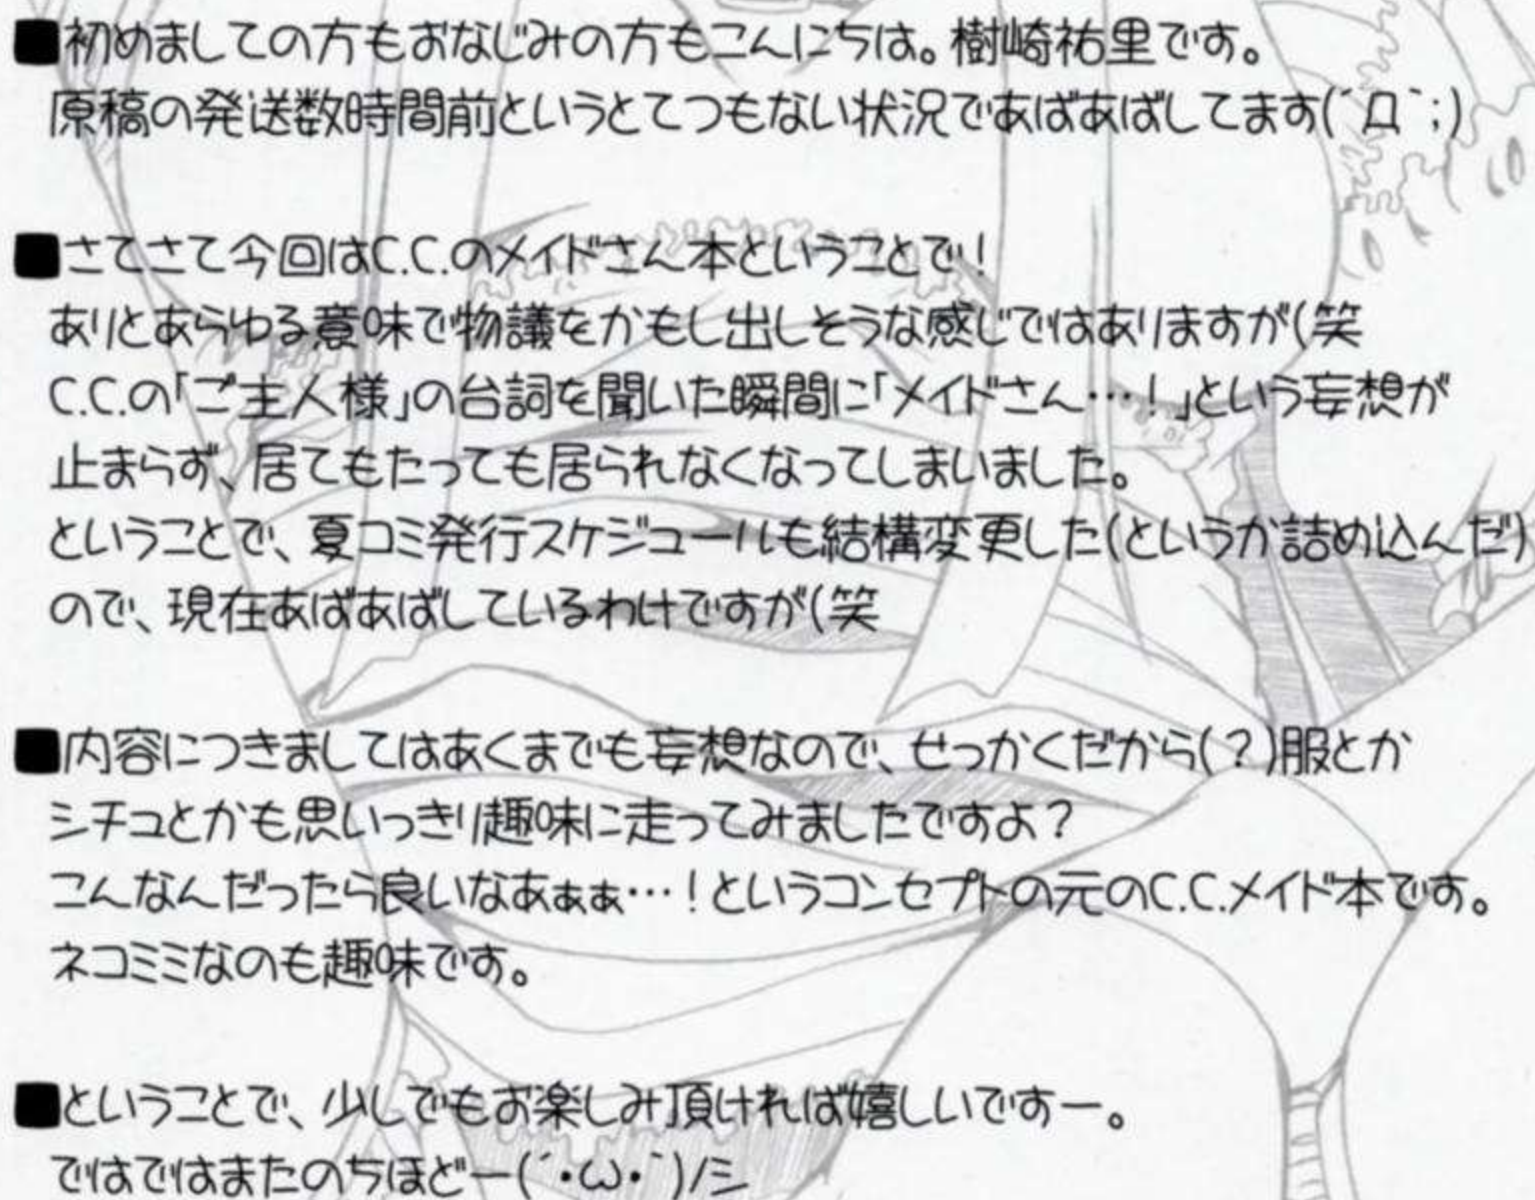 ■初めましての方もおなじみの方もこんにちは。樹崎祐里です。
原稿の発送数時間前というとてつもない状況であばあばしてます(´Д`;)
■さてさて今回はC.C.のメイドさん本ということで!
ありとあらゆる意味で物議をかもし出しそうな感じではありますが(笑
C.C.の「ご主人様」の台詞を聞いた瞬間に「メイドさん…!」という妄想が
止まらず、居てもたっても居られなくなってしまいました。
ということで、夏コミ発行スケジュールも結構変更した(というか詰め込んだ)
ので、現在あばあばしているわけですが(笑
■内容につきましてはあくまでも妄想なので、せっかくだから(?)服とか
シチュとかも思いっきり趣味に走ってみましたですよ?
こんなんだったら良いなあぁぁ…!というコンセプトの元のC.C.メイド本です。
ネコミミなのも趣味です。
■ということで、少しでもお楽しみ頂ければ嬉しいですー。
ではではまたのちほどー(´・ω・`)/シ